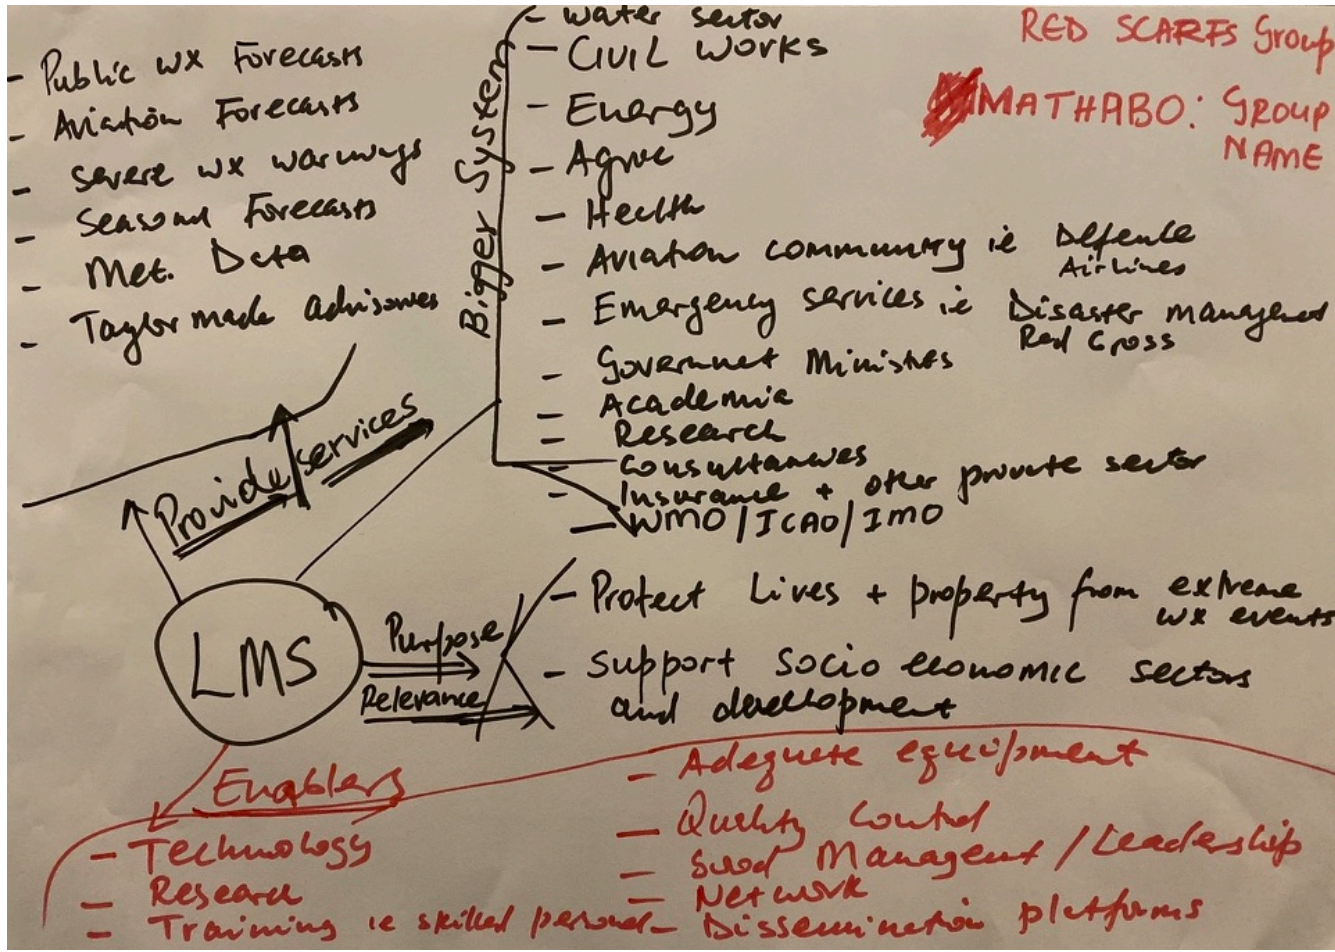 RED SCARFS Group
MATHABO: GROUP
NAME
- Public wx Forecasts
- Aviation Forecasts
- Severe wx warnings
- Seasonal Forecasts
- Met. Data
- Taylor made advisories
Provide services
Bigger System
- Water sector
- CIVIL WORKS
- Energy
- Agric
- Health
- Aviation community ie Defence
Airlines
- Emergency services ie Disaster management
Red Cross
- Government Ministries
- Academia
- Research
- Consultancies
- Insurance + other private sector
- WMO/ICAO/IMO
LMS
Purpose
Relevance
- Protect Lives + property from extreme
wx events
- Support Socio economic sectors
and development
Enablers
- Technology
- Research
- Training ie skilled personel
- Adequete equipment
- Quality Control
- Good Management / Leadership
- Network
- Dissemination platforms